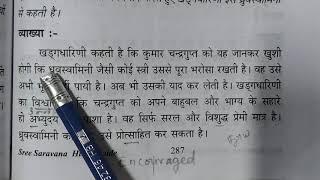 से कहती है।
व्याख्या :-
खड्गधारिणी कहती है कि कुमार चन्द्रगुप्त को यह जानकर खुशी
होगी कि ध्रुवस्वामिनी जैसी कोई स्त्री उससे पूरा भरोसा रखती है। वह उसे
अभी भी पायी है। अब भी उसको याद कर लेती है। खड्गधारिणी
का विश्वास कि चन्द्रगुप्त को अपने बाहुबल और भाग्य के सहारे
ही अभ्युदय पाना है। वह सिर्फ सरल और विशुद्ध प्रेमी मात्र है।
ध्रुवस्वामिनी उसे प्रोत्साहित कर सकता है।
Sree Saravana 287
encouraged